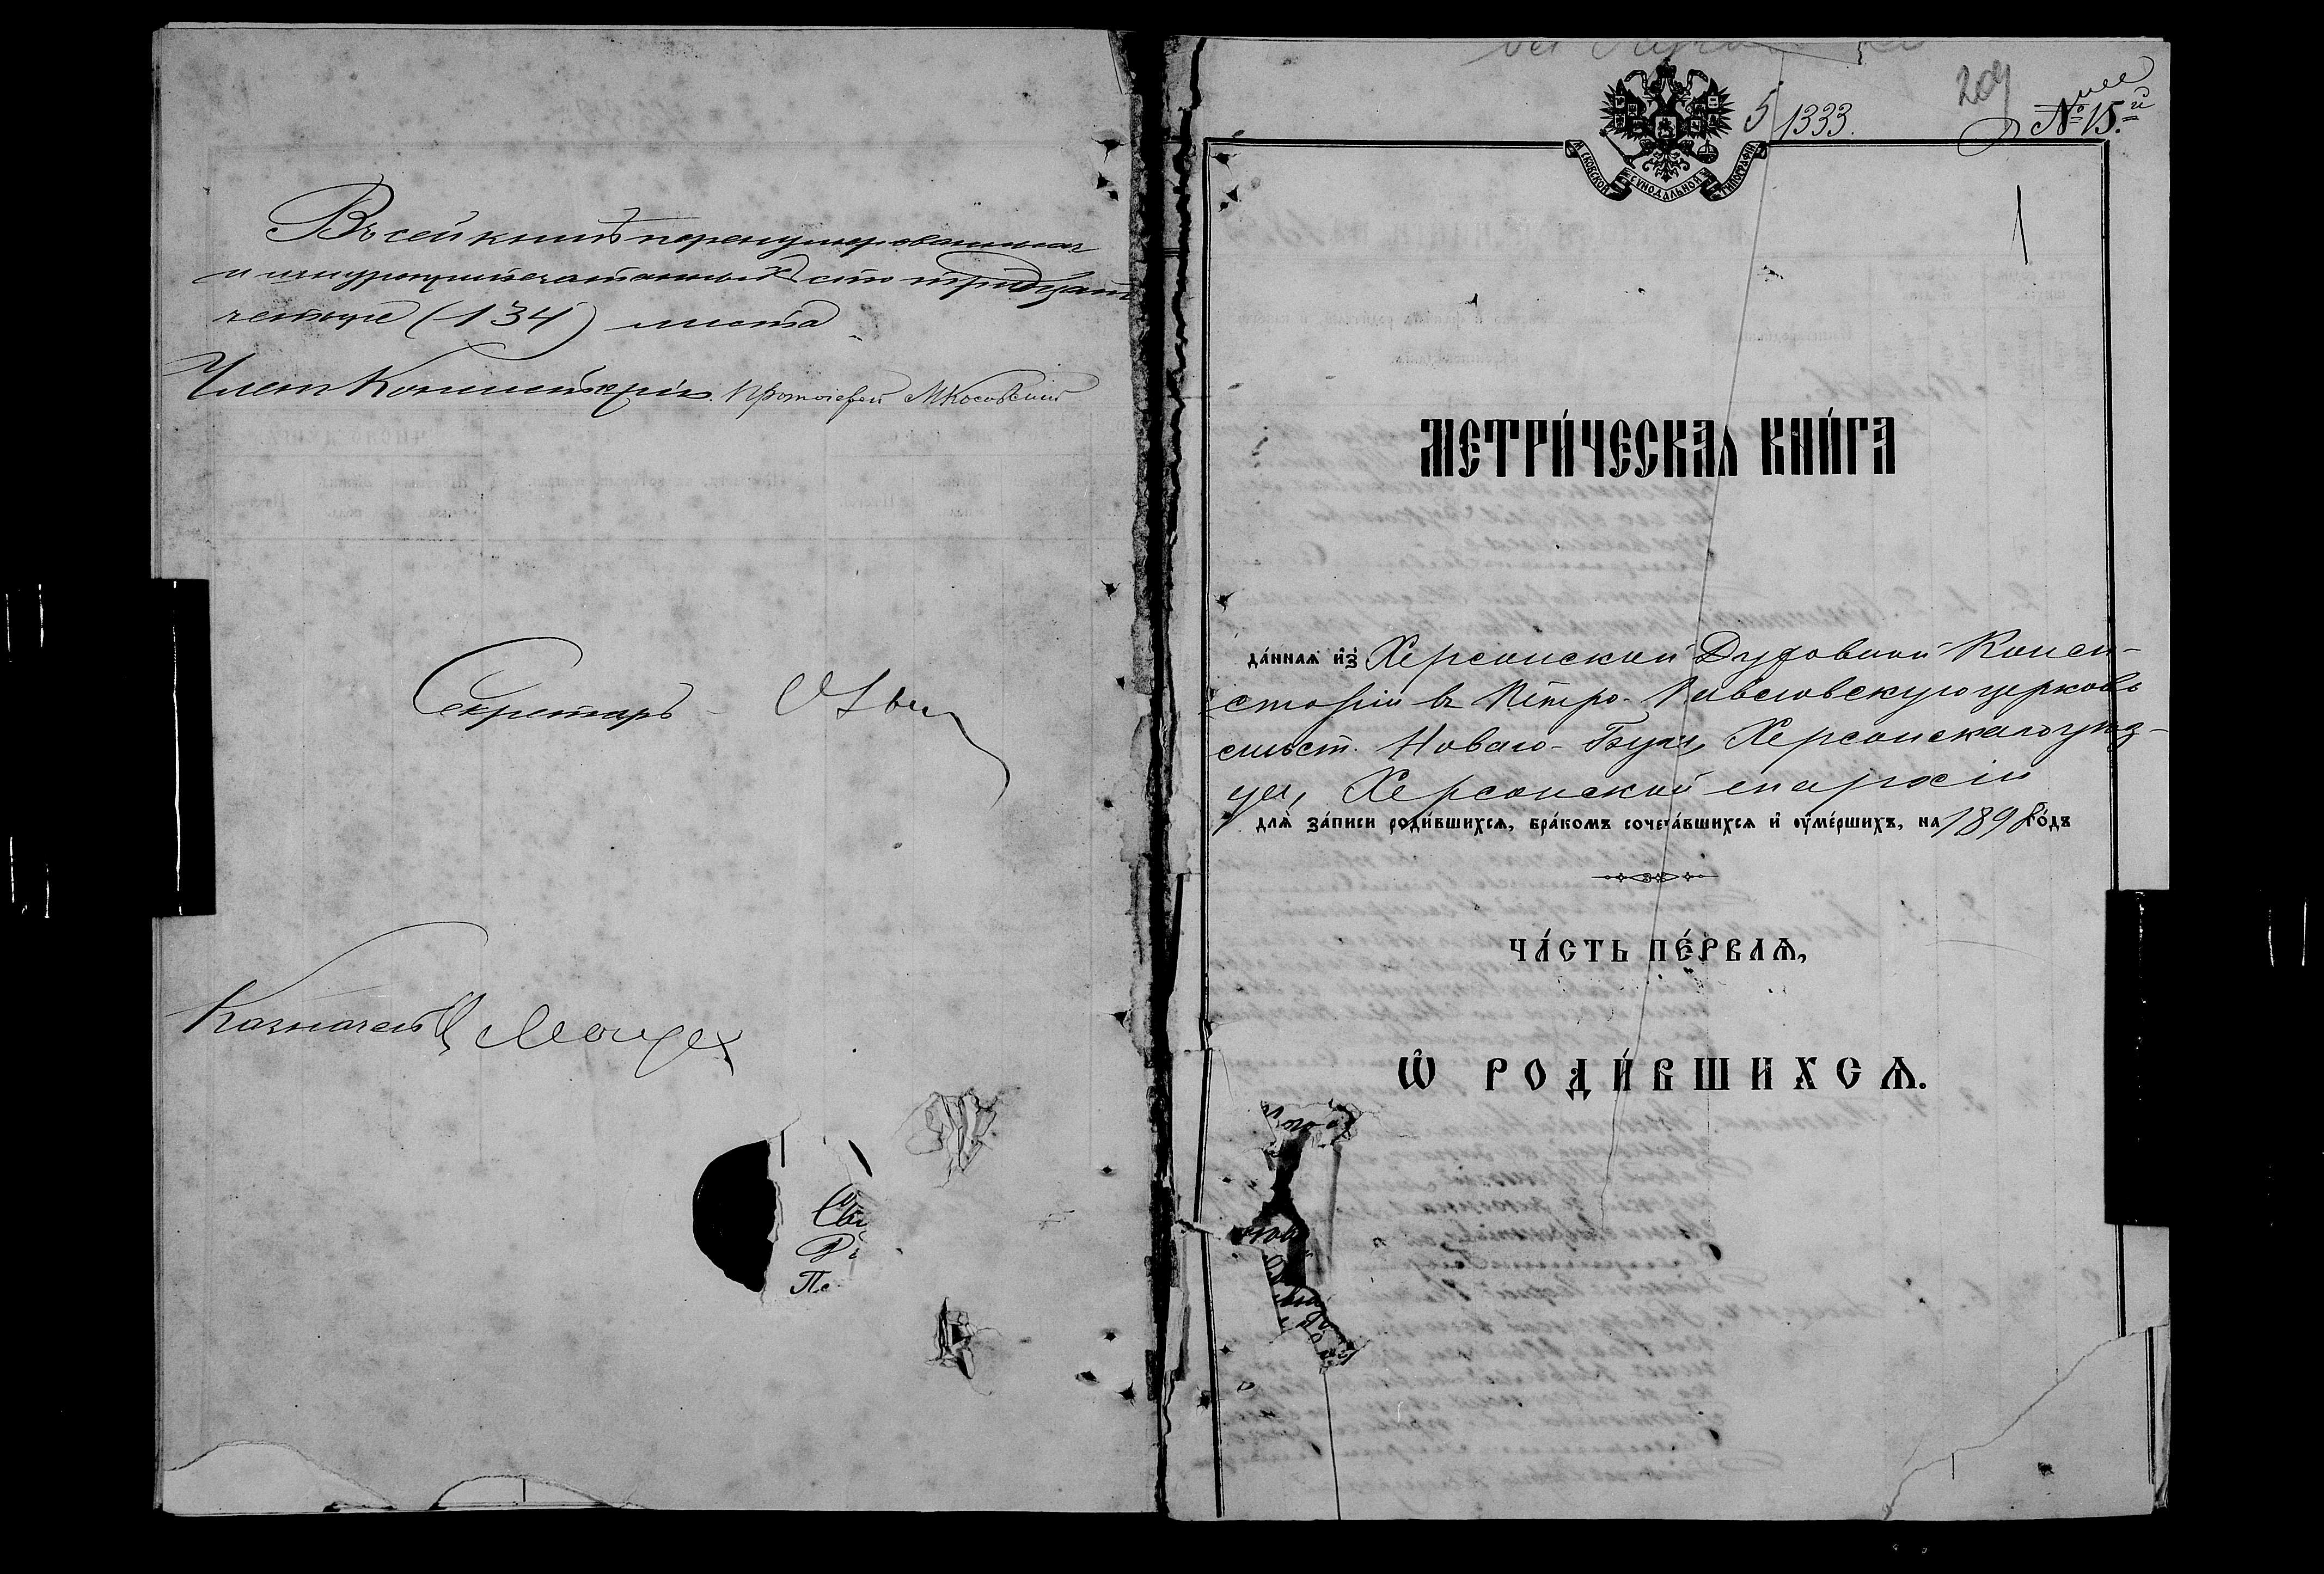 Въ сей книгѣ перенумерованныхъ
и шнуроприпечатанныхъ сто тридцать
четыре (134) листа
Членъ Консисторіи Протоіерей М Косовскій
Секретарь
Казначей
Сви
Пе
5/1333.
209
№ 15.й
МОСКОВСКОЙ СѴНОДАЛЬНОЙ ТИПОГРАФІИ
1
МЕТРИ́ЧЕСКАѦ КНИ́ГА
да́ннаѧ и҆з̾ Херсонской Духовной Конси-
сторіи въ Петро-Павловскую церковь
Новаго-Буга, Херсонскаго уѣз-
да, Херсонской епархіи
длѧ̀ за́писи роди́вшихсѧ, бра́комъ сочета́вшихсѧ и҆ ѹ҆ме́ршихъ, на 1898 го́дъ
ЧА́СТЬ ПЕ́РВАѦ,
Ѡ҆ РОДИ́ВШИХСѦ.